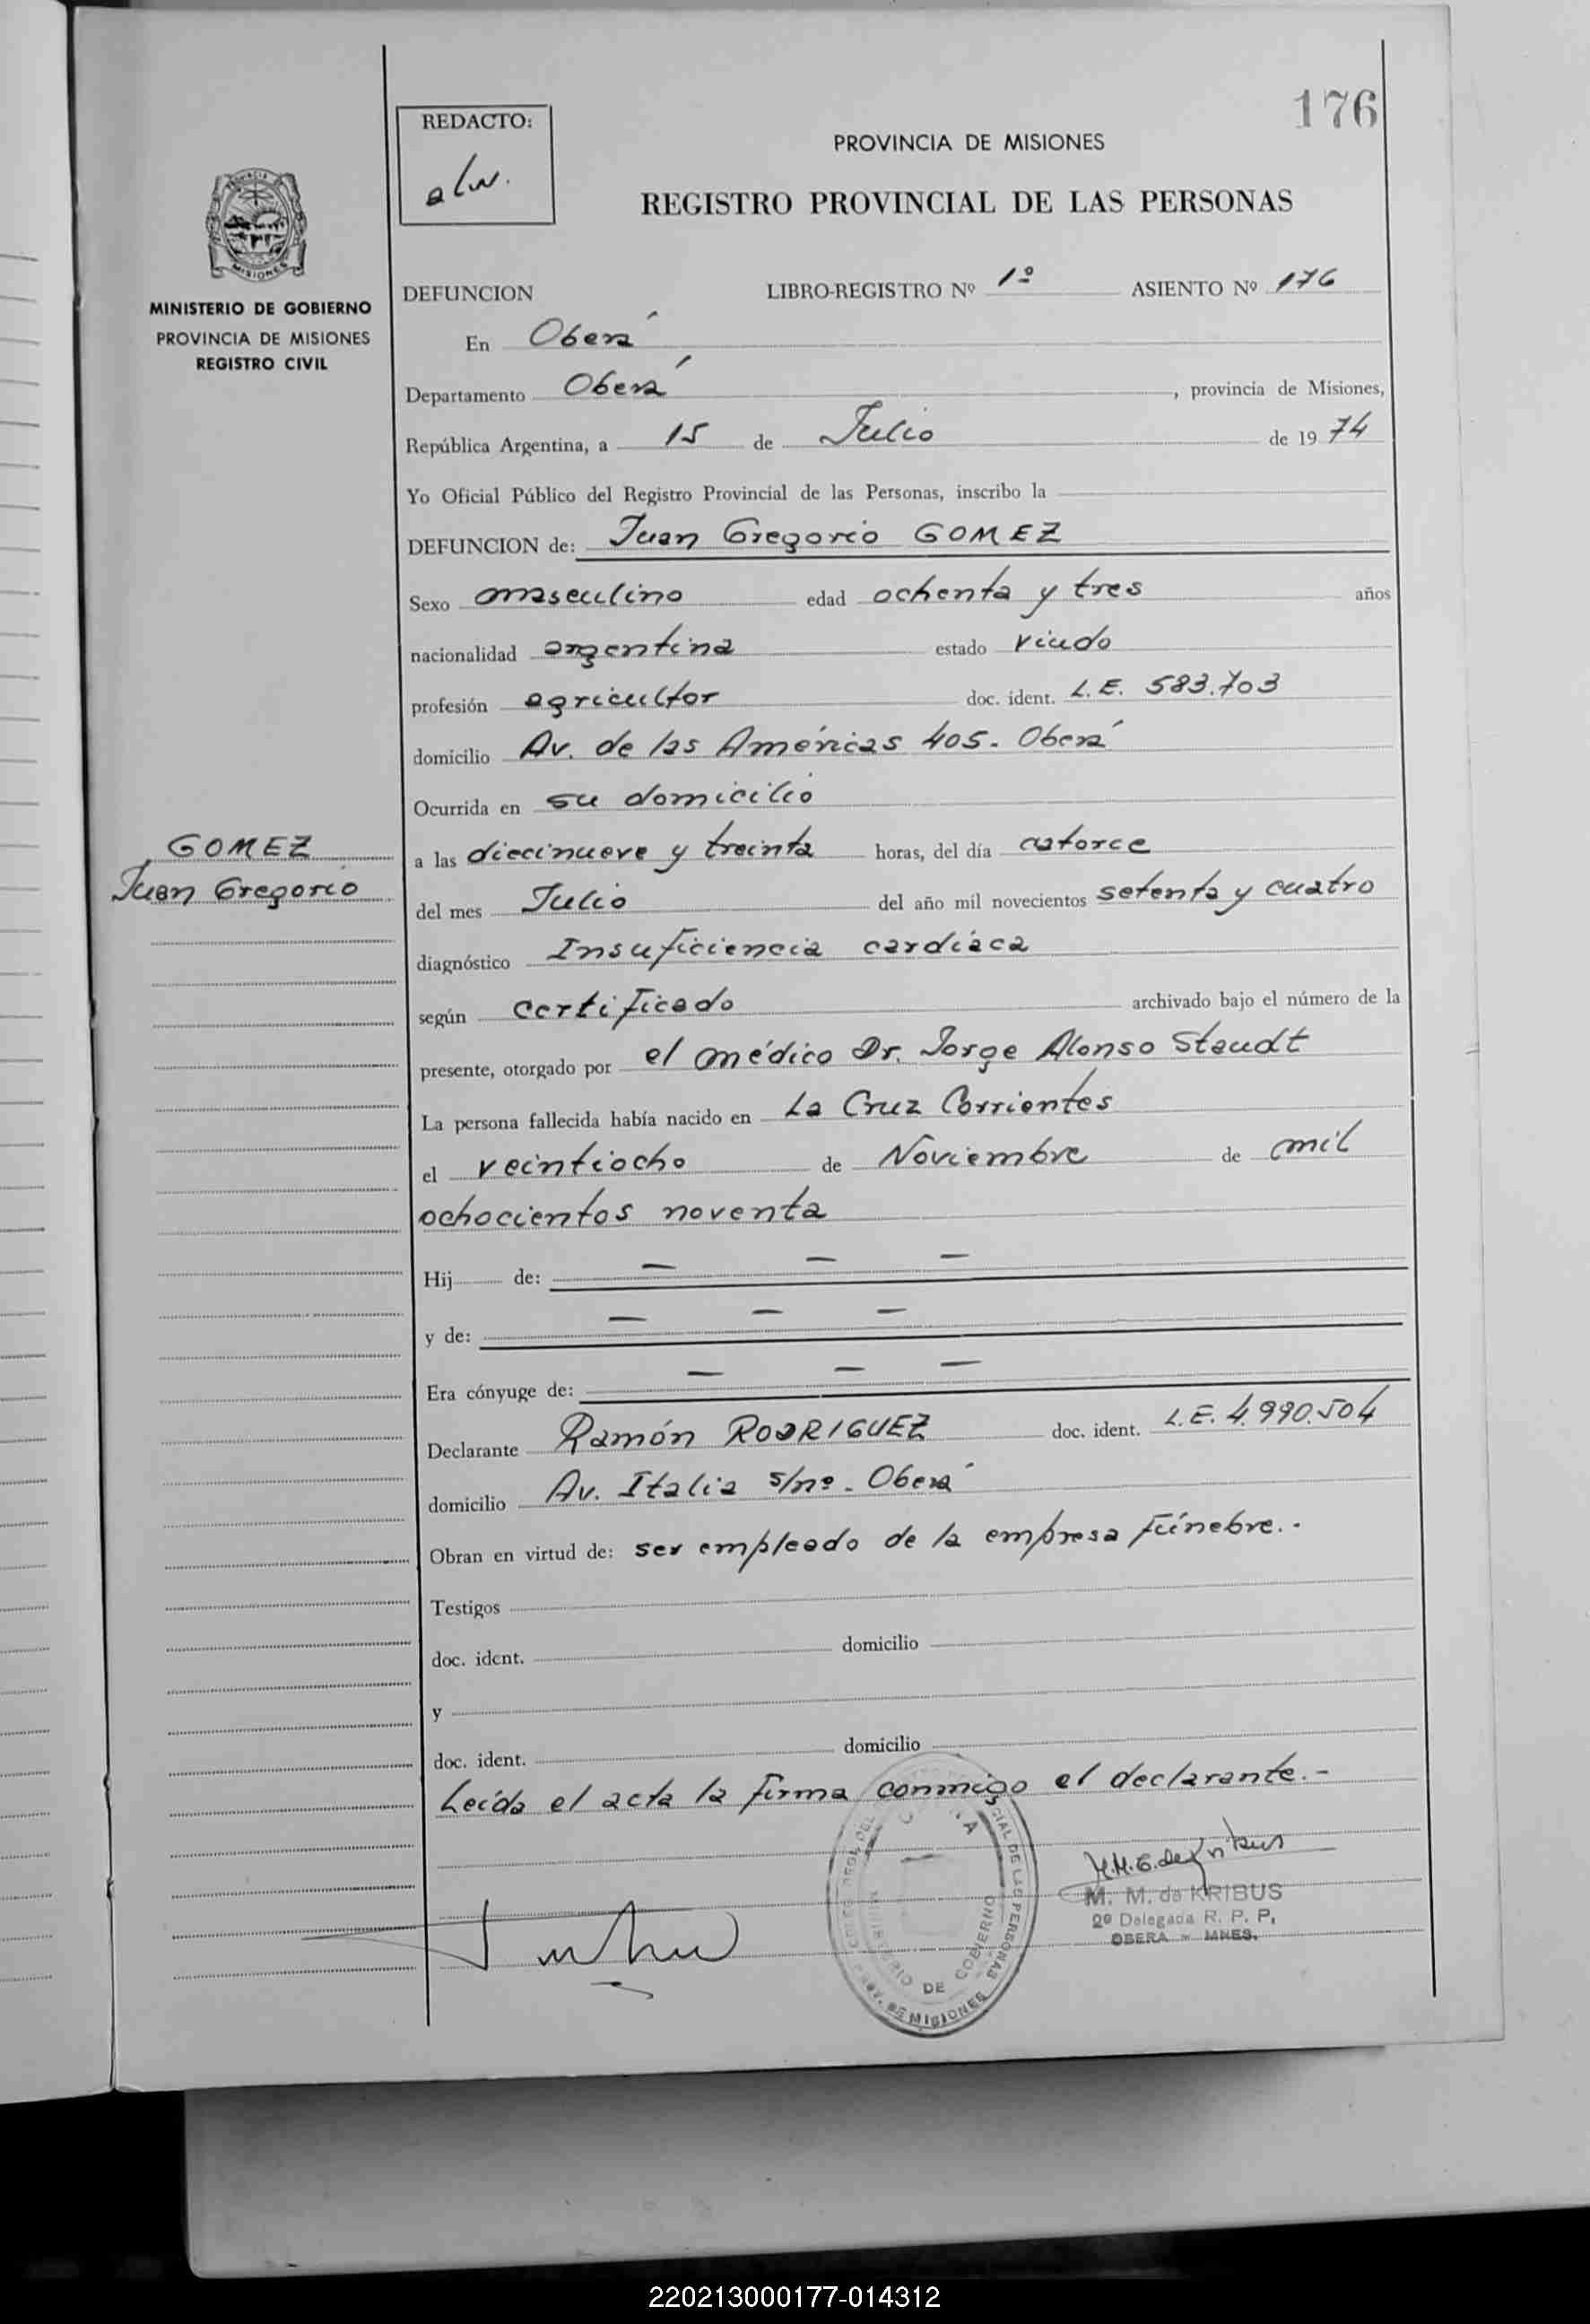 176
REDACTO:
alw.
PROVINCIA DE MISIONES
REGISTRO PROVINCIAL DE LAS PERSONAS
MISIONES
MINISTERIO DE GOBIERNO
PROVINCIA DE MISIONES
REGISTRO CIVIL
DEFUNCION LIBRO-REGISTRO Nº 1º ASIENTO Nº 176
En Oberá
Departamento Oberá, provincia de Misiones,
República Argentina, a 15 de Julio de 1974
Yo Oficial Público del Registro Provincial de las Personas, inscribo la
DEFUNCION de: Juan Gregorio GOMEZ
Sexo masculino edad ochenta y tres años
nacionalidad argentina estado viudo
profesión agricultor doc. ident. L.E. 583.703
domicilio Av. de las Américas 405. Oberá
Ocurrida en su domicilio
GOMEZ
Juan Gregorio
a las diecinueve y treinta horas, del día catorce
del mes Julio del año mil novecientos setenta y cuatro
diagnóstico Insuficiencia cardíaca
según certificado archivado bajo el número de la
presente, otorgado por el médico Dr. Jorge Alonso Staudt
La persona fallecida había nacido en La Cruz Corrientes
el veintiocho de Noviembre de mil
ochocientos noventa
Hij de: — — —
y de: — — —
Era cónyuge de: — — —
Declarante Ramón RODRIGUEZ doc. ident. L.E. 4.990.504
domicilio Av. Italia s/nº. Oberá
Obran en virtud de: ser empleado de la empresa fúnebre.-
Testigos
doc. ident. domicilio
y
doc. ident. domicilio
Leída el acta la firma conmigo el declarante.-
M. M. de KRIBUS
2º Delegada R. P. P.
OBERA - MNES.
MINISTERIO DE GOBIERNO
PROV. DE MISIONES
220213000177-014312